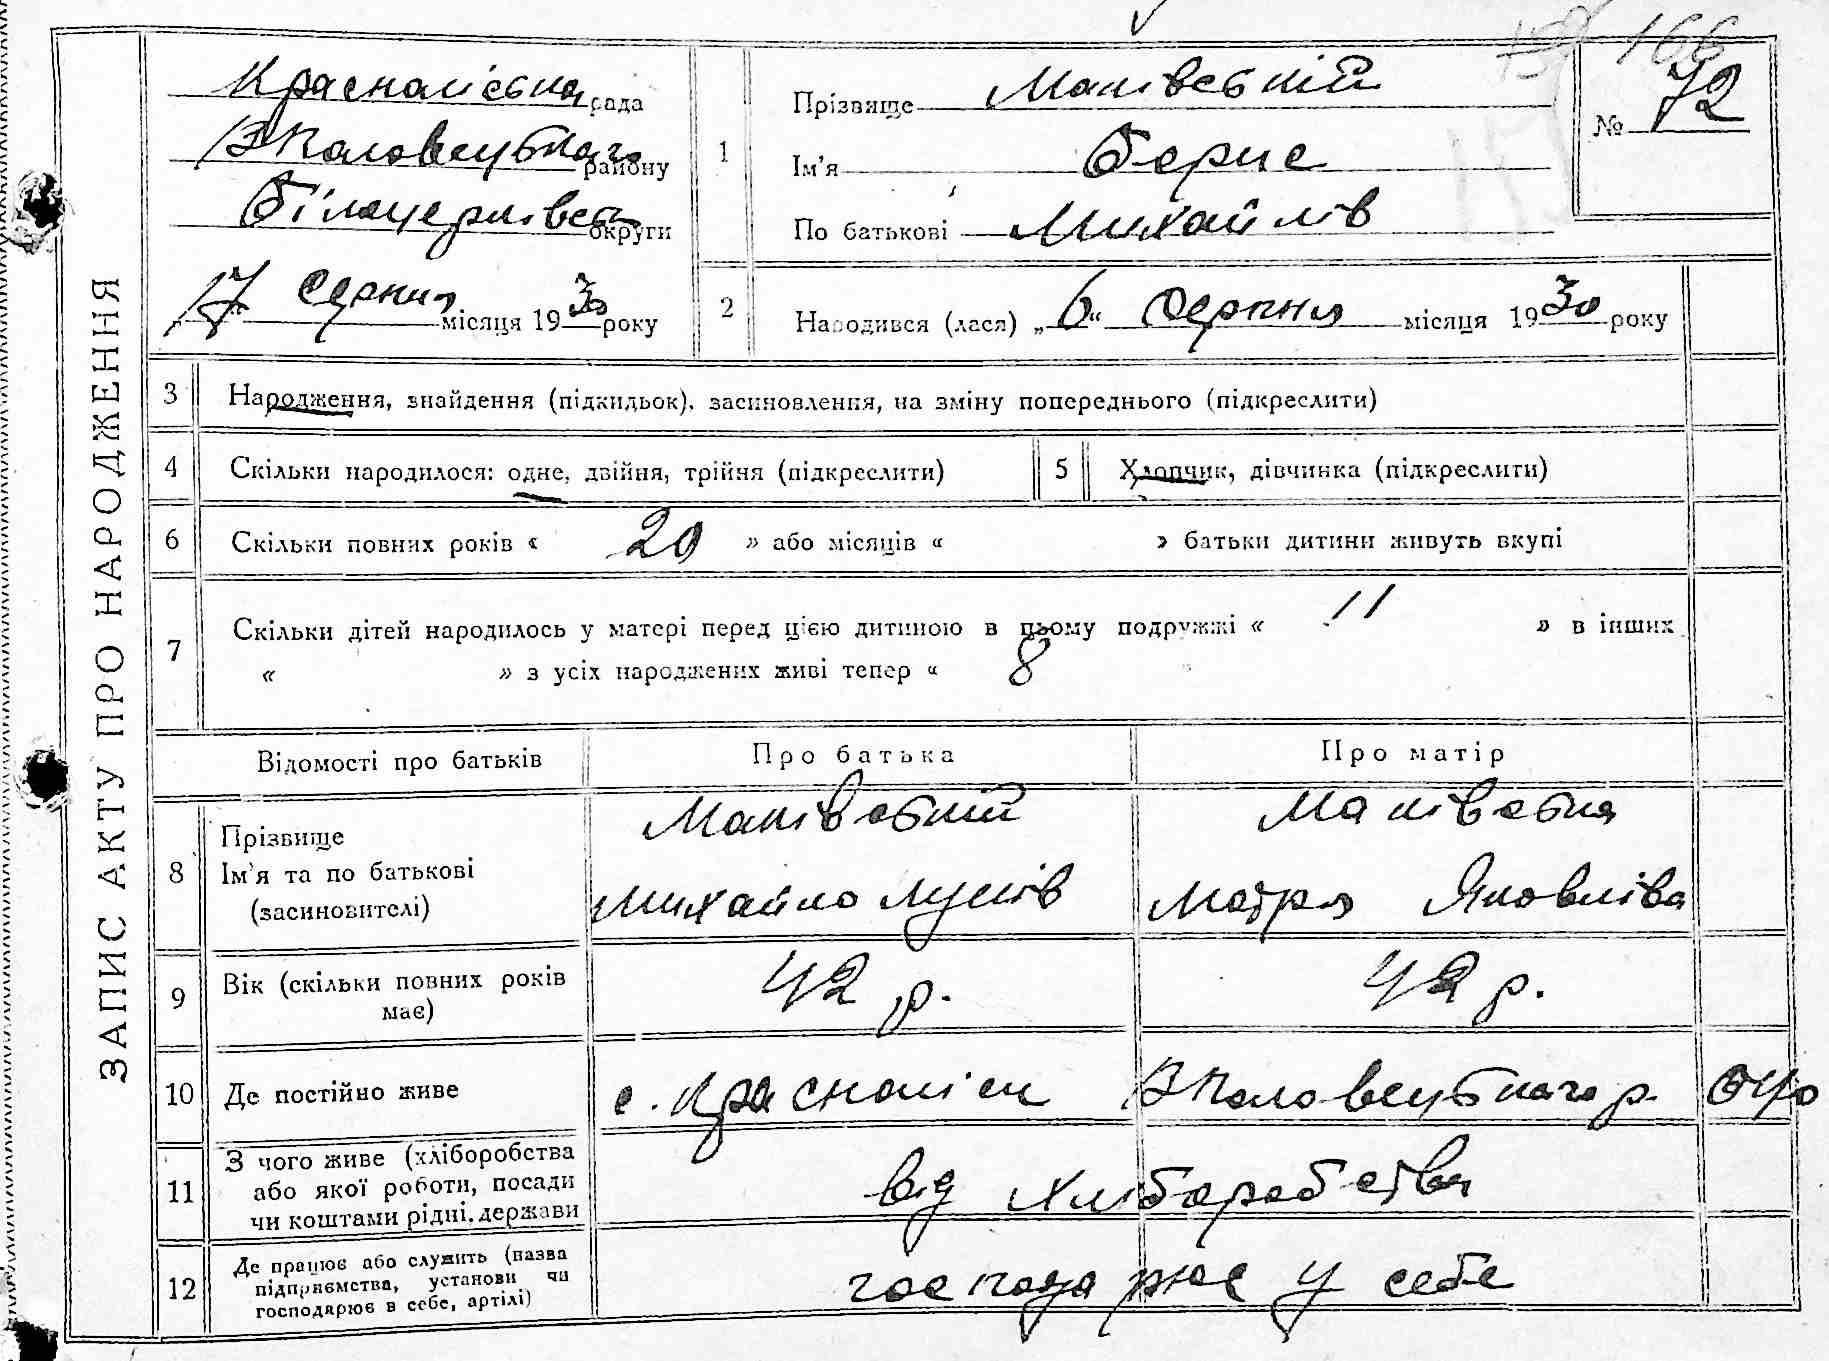 ЗАПИС АКТУ ПРО НАРОДЖЕННЯ
Красноліська рада
району
Білоцерківськ округи
„17“ серпня місяця 1930 року
166
№ 72
1
Прізвище Маківський
Ім'я Борис
По батькові Михайлів
2
Народився (лася) „6“ Серпня місяця 1930 року
3 Народження, знайдення (підкидьок), засиновлення, на зміну попереднього (підкреслити)
4 Скільки народилося: одне, двійня, трійня (підкреслити)
5 Хлопчик, дівчинка (підкреслити)
6 Скільки повних років « 20 » або місяців « » батьки дитини живуть вкупі
7 Скільки дітей народилось у матері перед цією дитиною в цьому подружжі « 11 » в інших
« » з усіх народжених живі тепер « 8
Відомості про батьків Про батька Про матір
8
Прізвище
Ім'я та по батькові
(засиновителі)
Маківський
Михайло Луків
Маківська
Мотря Яковліва
9 Вік (скільки повних років
має)
42 р. 42 р.
10 Де постійно живе с. Красноліси р.
11
З чого живе (хліборобства
або якої роботи, посади
чи коштами рідні, держави
від хліборобства
12
Де працює або служить (назва
підприємства, установи чи
господарює в себе, артілі)
господарює у себе